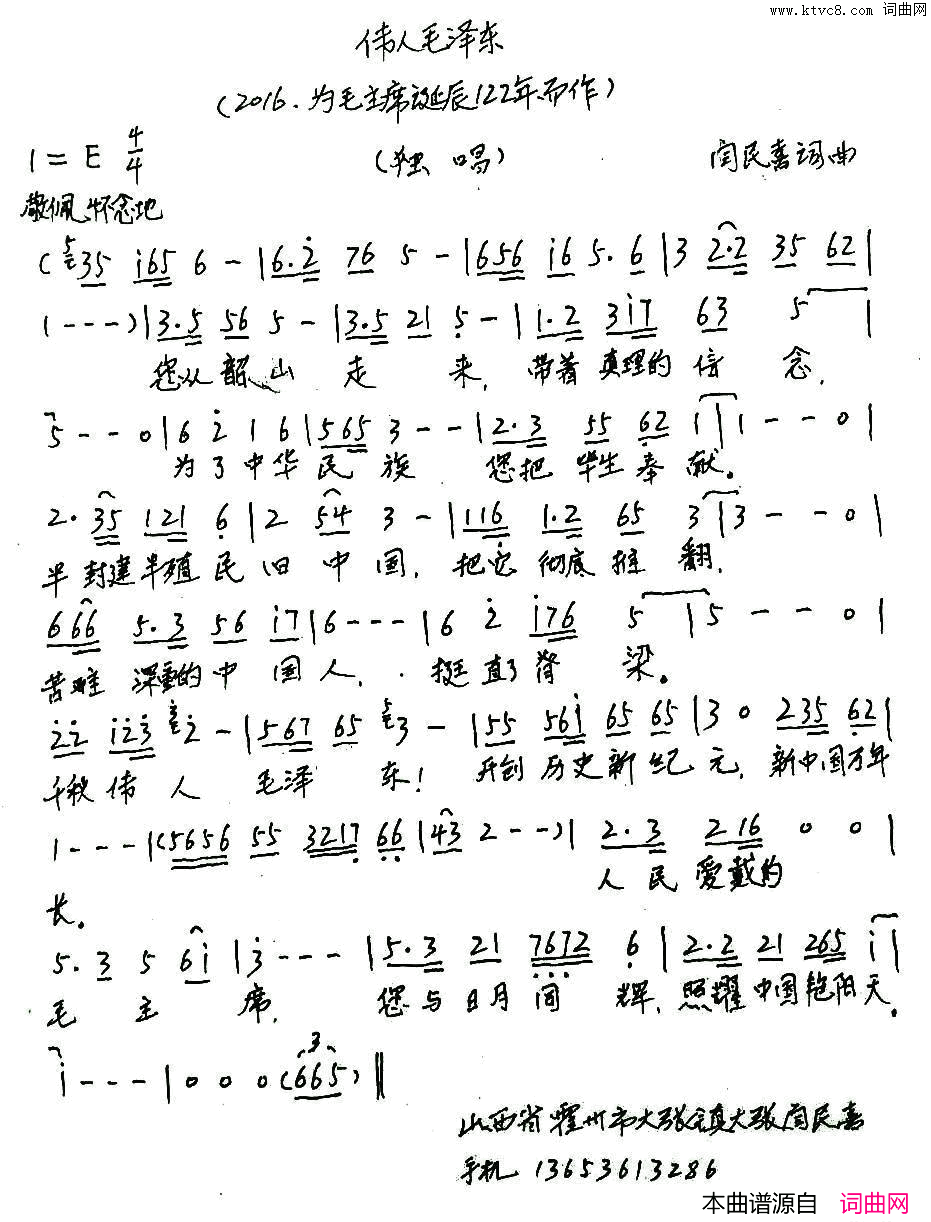 www.ktvc8.com 词曲网
伟人毛泽东
(2016.为毛主席诞辰122年而作)
1=E 4/4 (独唱) 闫民喜词曲
敬佩怀念地
(5 35 i65 6 - | 6.2̇ 76 5 - | 656 i6 5.6 | 3 2.2 35 62 |
1 - - -) | 3.5 56 5 - | 3.5 21 5̣ - | 1.2 3i7 63 5 |
您从韶山走来, 带着真理的信念,
5 - - 0 | 6 2̇ 1 6 | 565 3 - - | 2.3 55 6̣2 1 | 1 - - 0 |
为了中华民族 您把毕生奉献。
2. 35 121 6̣ | 2 54 3 - | 116̣ 1.2 65 3 | 3 - - 0 |
半封建半殖民旧中国, 把它彻底推翻,
666 5.3 56 i7 | 6 - - - | 6 2̇ i76 5 | 5 - - 0 |
苦难深重的中国人, 挺直了脊梁。
2̇2̇ i2̇3̇ 3̇ 2̇ - | 567 65 5 3 - | 55 56i 65 65 | 3 0 235 6̣2 |
千秋伟人毛泽东! 开创历史新纪元, 新中国万年
1 - - - | (5656 55 3217̣ 6̣6̣ | 43 2 - -) | 2.3 216 0 0 |
长。 人民爱戴的
5.3 5 6i | 3̇ - - - | 5.3 21 7̣6̣7̣2 6̣ | 2.2 21 265 i |
毛主席, 您与日月同辉, 照耀中国艳阳天。
i - - - | 0 0 0 (665) ‖
3
山西省霍州市大张镇大张闫民喜
手机 13653613286
本曲谱源自 词曲网